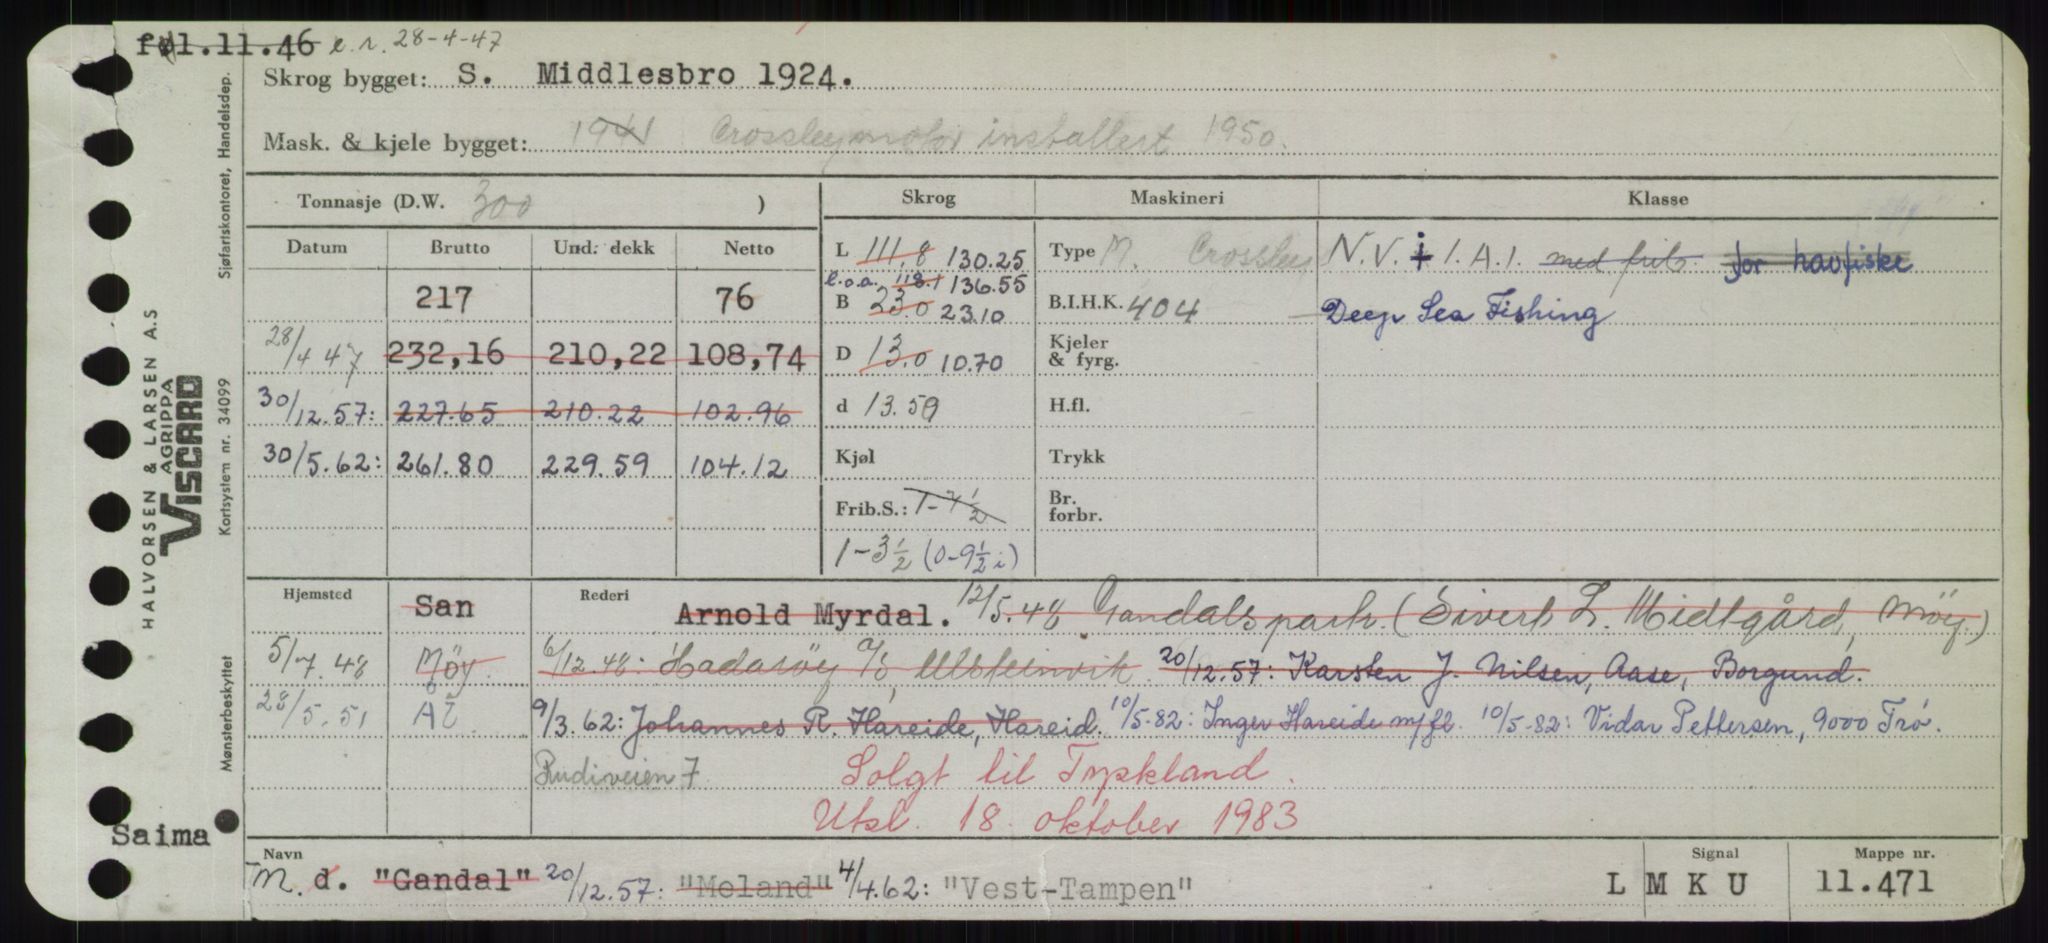 føl.11.46 e.r. 28-4-47
Skrog bygget: S. Middlesbro 1924.
Mask. & kjele bygget: 1941 Crossleymotor installert 1950.
Tonnasje (D.W. 300 )
Skrog
Maskineri
Klasse
Datum Brutto Und. dekk Netto
217 76
28/4 47 232,16 210,22 108,74
30/12.57: 227.65 210.22 102.96
30/5.62: 261.80 229.59 104.12
L 111,8 130.25
l.o.a. 118.1 136.55
B 23.0 23.10
D 13.0 10.70
d 13.59
Kjøl
Frib.S.: 1-7½
1-3½ (0-9½ i)
Type M. Crossley
B.I.H.K. 404
Kjeler
& fyrg.
H.fl.
Trykk
Br.
forbr.
N.V. + 1.A.1. med frib. for havfiske
Deep Sea Fishing
Hjemsted San Rederi Arnold Myrdal. 12/5.48 Gandals park. (Sivert L. Midtgård, Möy.)
5/7.48 Möy. 6/12.48: Hadaröy A/S, Ulsteinvik. 20/12.57: Karsten J. Nilsen, Aase, Borgund.
28/5.51 Ål. 9/3.62: Johannes R. Hareide, Hareid. 10/5-82: Inger Hareide m/fl. 10/5-82: Vidar Pettersen, 9000 Trö.
Rudiveien 7
Solgt til Tyskland.
Utsl. 18. oktober 1983
Saima
Navn
M. d. "Gandal" 20/12.57: "Meland" 4/4.62: "Vest-Tampen"
Signal
L M K U
Mappe nr.
11.471
HALVORSEN & LARSEN A.S
AGRIPPA
VISCARD
Mønsterbeskyttet Kortsystem nr. 34099 Sjøfartskontoret, Handelsdep.